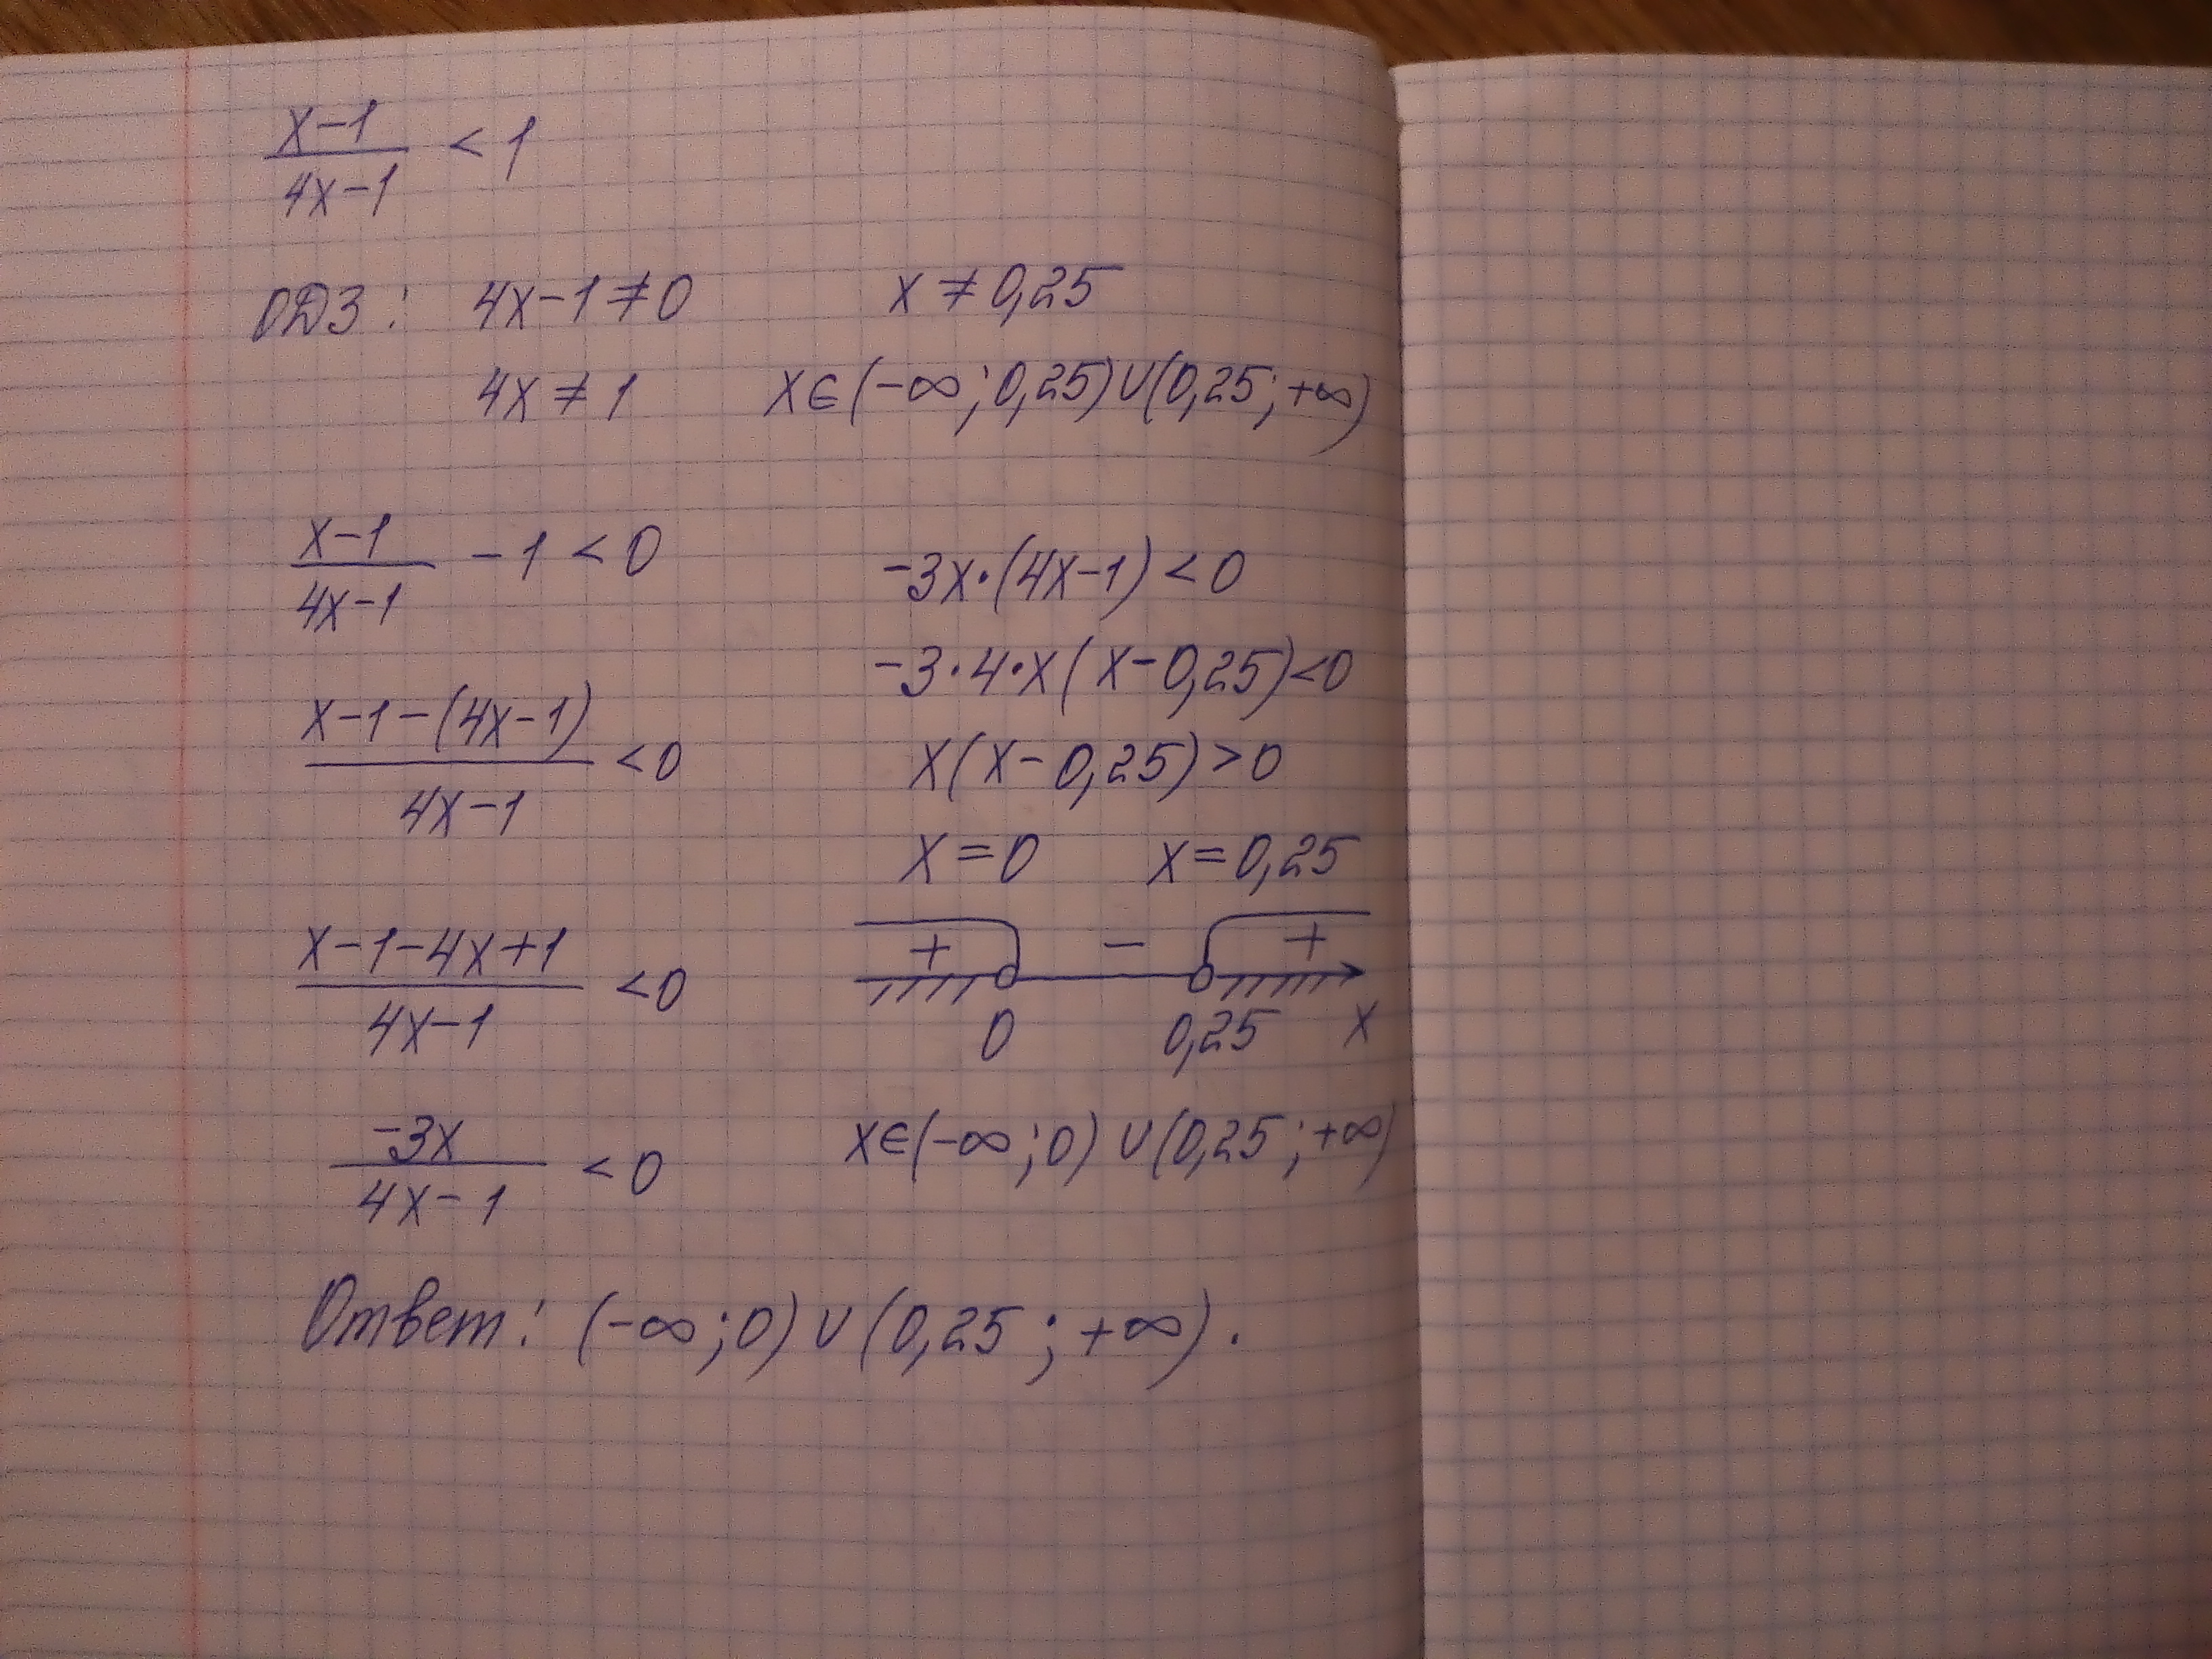 x-1/4x-1 < 1
ОДЗ: 4x-1≠0 x≠0,25
4x≠1 x∈(-∞;0,25)∪(0,25;+∞)
x-1/4x-1 -1<0
x-1-(4x-1)/4x-1 <0
x-1-4x+1/4x-1 <0
-3x/4x-1 <0
-3x·(4x-1)<0
-3·4·x(x-0,25)<0
x(x-0,25)>0
x=0 x=0,25
+ - +
0 0,25 x
x∈(-∞;0)∪(0,25;+∞)
Ответ: (-∞;0)∪(0,25;+∞).